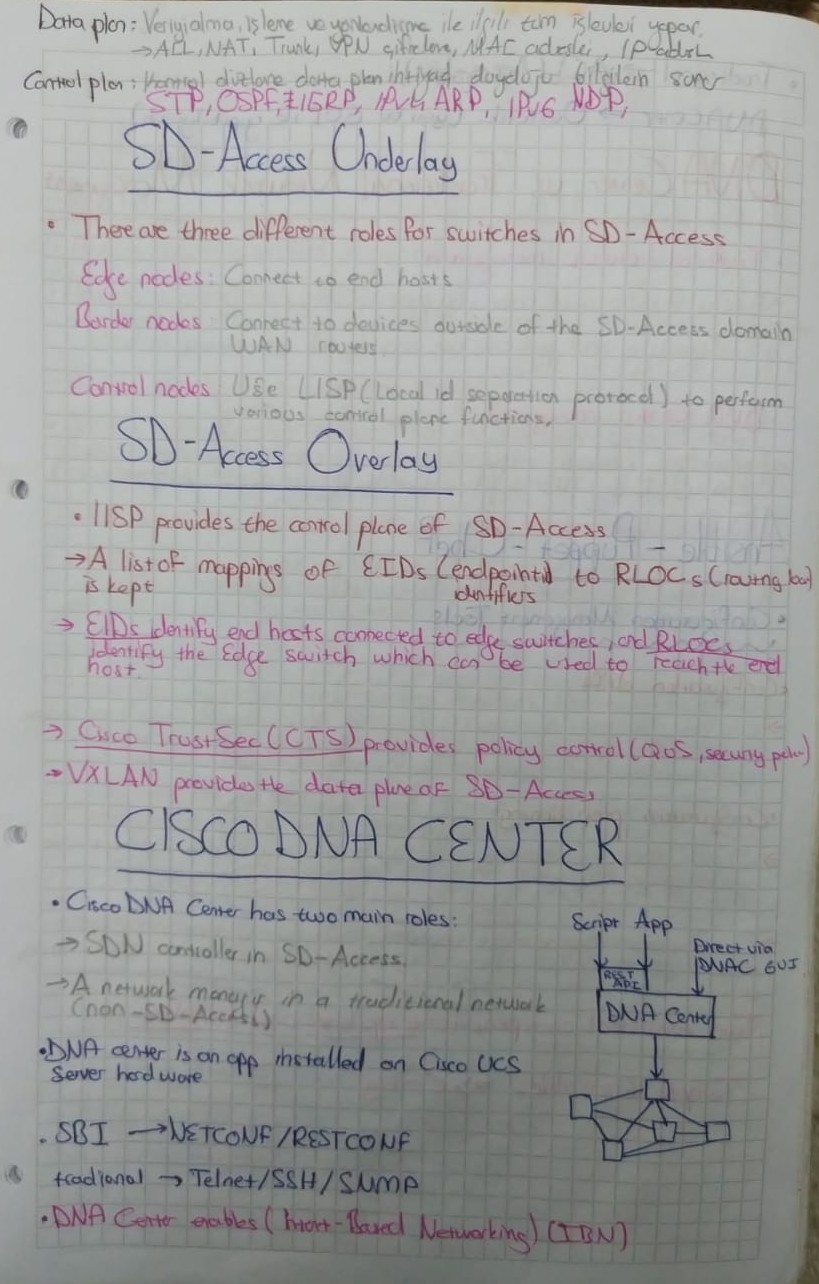 Data plan: Veriyi alma, işleme ve yönlendirme ile ilgili tüm işlevleri yapar.
→ ACL, NAT, Trunk, VPN şifreleme, MAC adresleri, IP
Control plan: Kontrol düzlemi data plan ihtiyaç duyduğu bilgilerin sunar
STP, OSPF, EIGRP, IPv4 ARP, IPv6 NDP,
SD-Access Underlay
• There are three different roles for switches in SD-Access
Edge nodes: Connect to end hosts
Border nodes Connect to devices outside of the SD-Access domain
WAN routers
Control nodes Use LISP (Local id separation protocol) to perform
various control plane functions.
SD-Access Overlay
• lISP provides the control plane of SD-Access
→ A list of mappings of EIDs (endpoint to RLOCs (routing loc)
is kept identifiers
→ EIDs identify end hosts connected to edge switches, and RLOCs
identify the Edge switch which can be used to reach the end
host.
→ Cisco TrustSec (CTS) provides policy control (QoS, security
→ VXLAN provides the data plane of SD-Access
CISCO DNA CENTER
• Cisco DNA Center has two main roles:
→ SDN controller in SD-Access
→ A network in a network
(non-SD-Access)
• DNA center is an app installed on Cisco UCS
Server hardware
• SBI → NETCONF/RESTCONF
tradional → Telnet/SSH/SNMP
• DNA Center enables (Intent-Based Networking) (IBN)
Script App
Direct via
DNAC GUI
REST
API
DNA Center